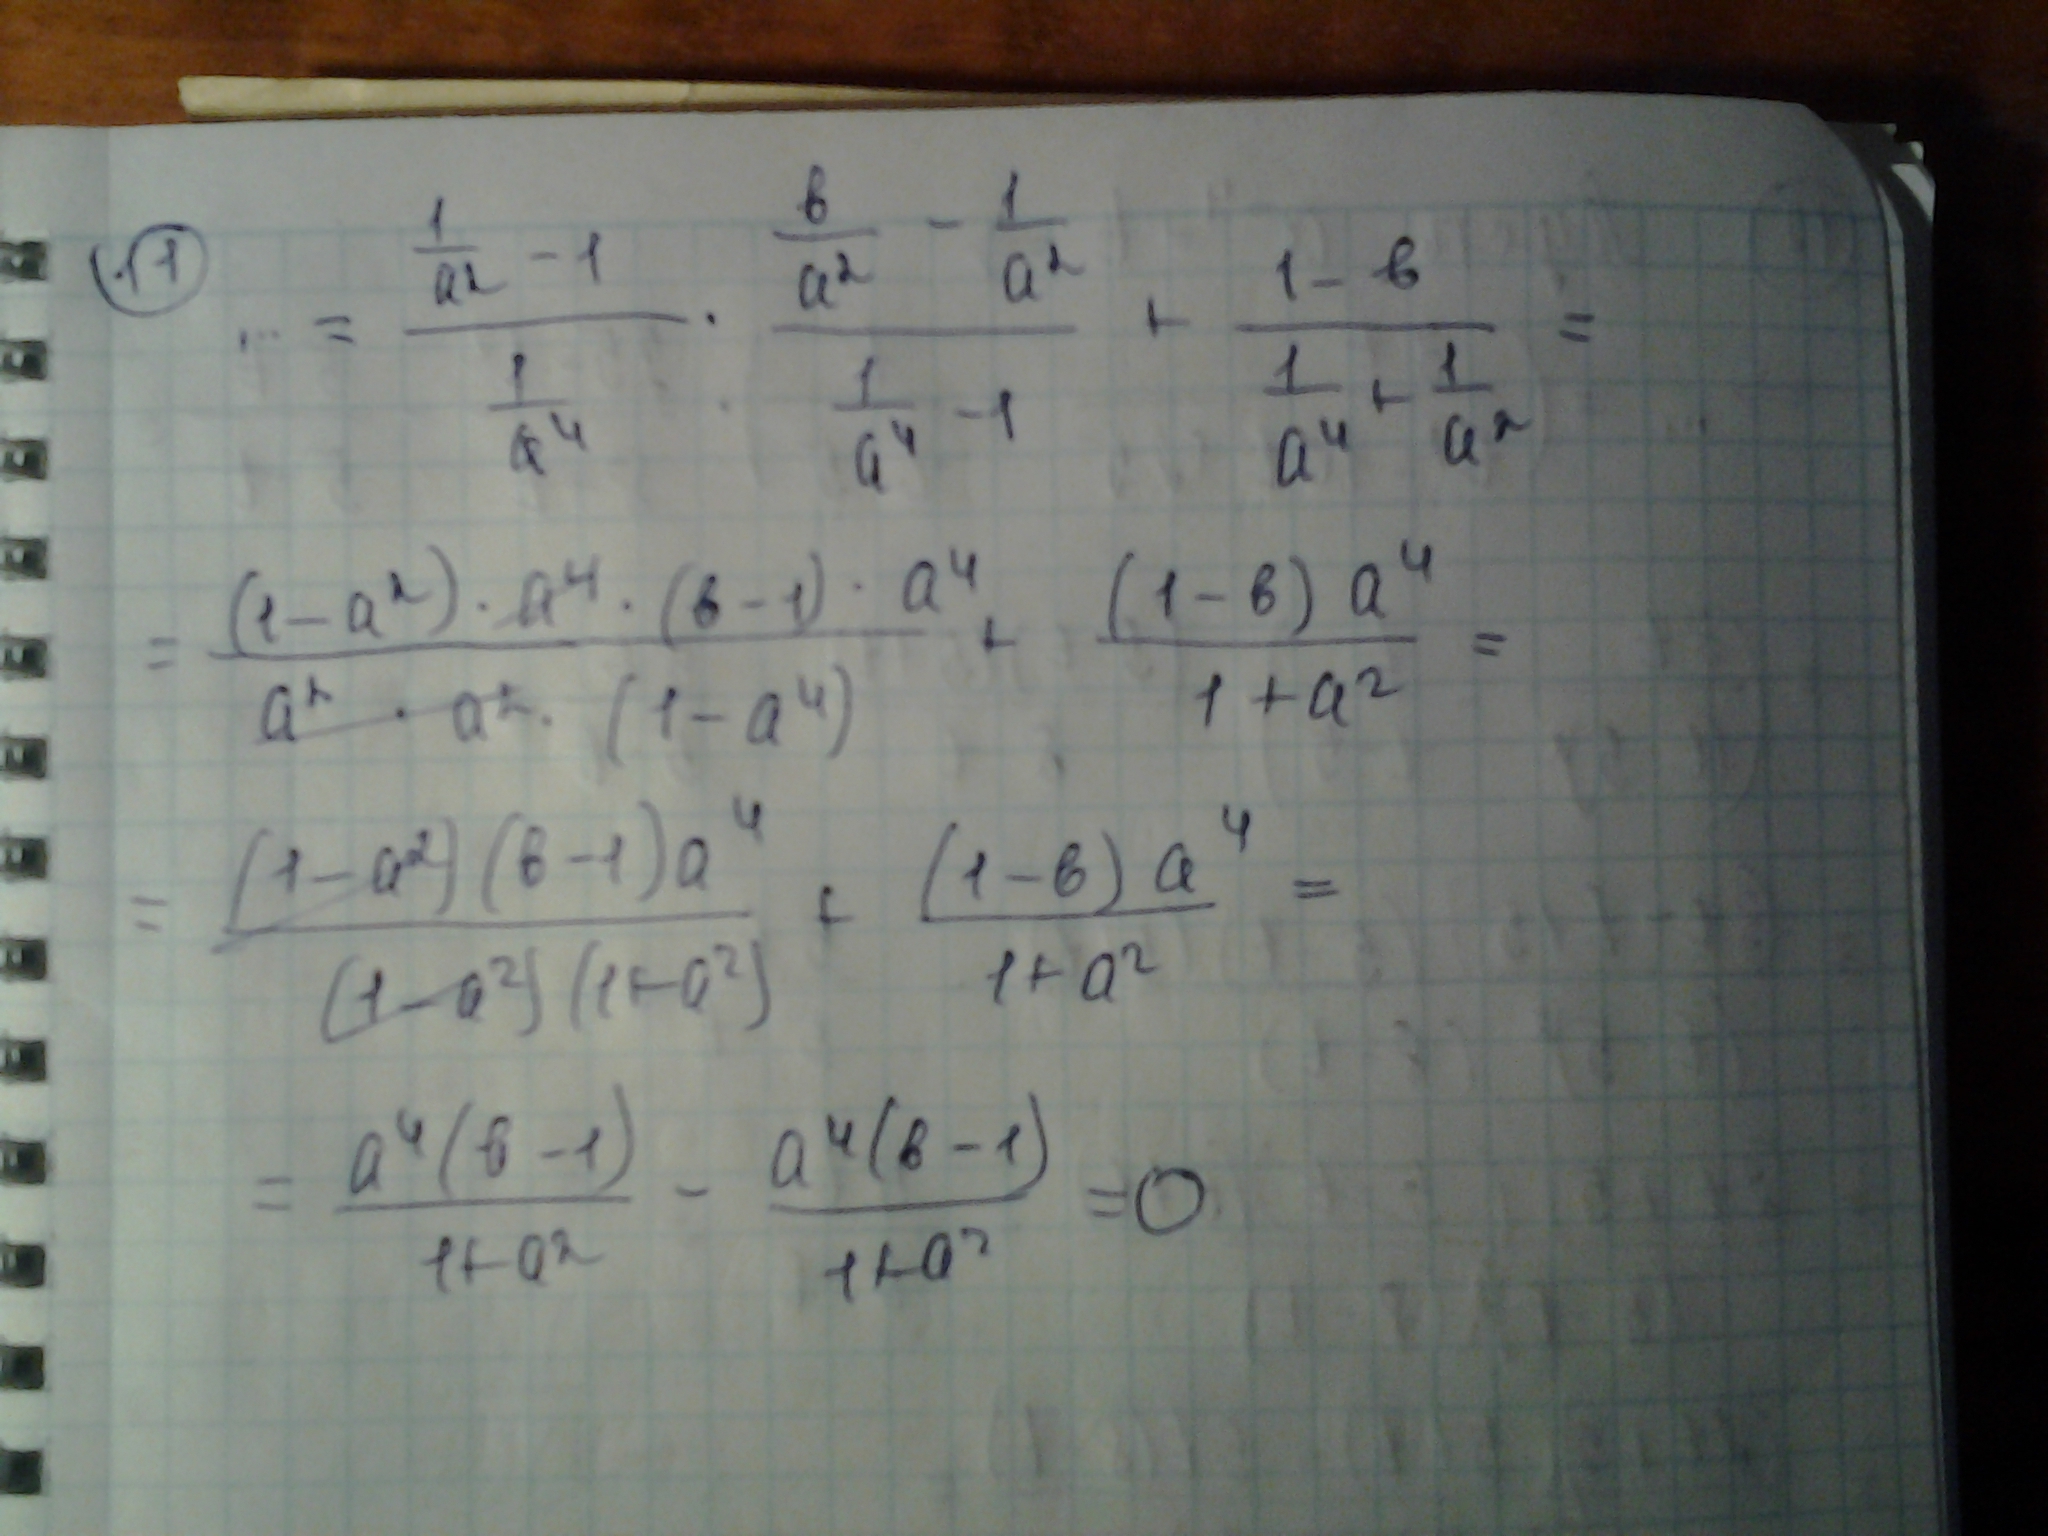 11
... = (1/a² - 1)/(1/a⁴) · (в/a² - 1/a²)/(1/a⁴ - 1) + (1 - в)/(1/a⁴ + 1/a²) =
= ((1 - a²) · a⁴ · (в - 1) · a⁴)/(a² · a² · (1 - a⁴)) + ((1 - в) a⁴)/(1 + a²) =
= ((1 - a²)(в - 1)a⁴)/((1 - a²)(1 + a²)) + ((1 - в) a⁴)/(1 + a²) =
= (a⁴(в - 1))/(1 + a²) - (a⁴(в - 1))/(1 + a²) = 0